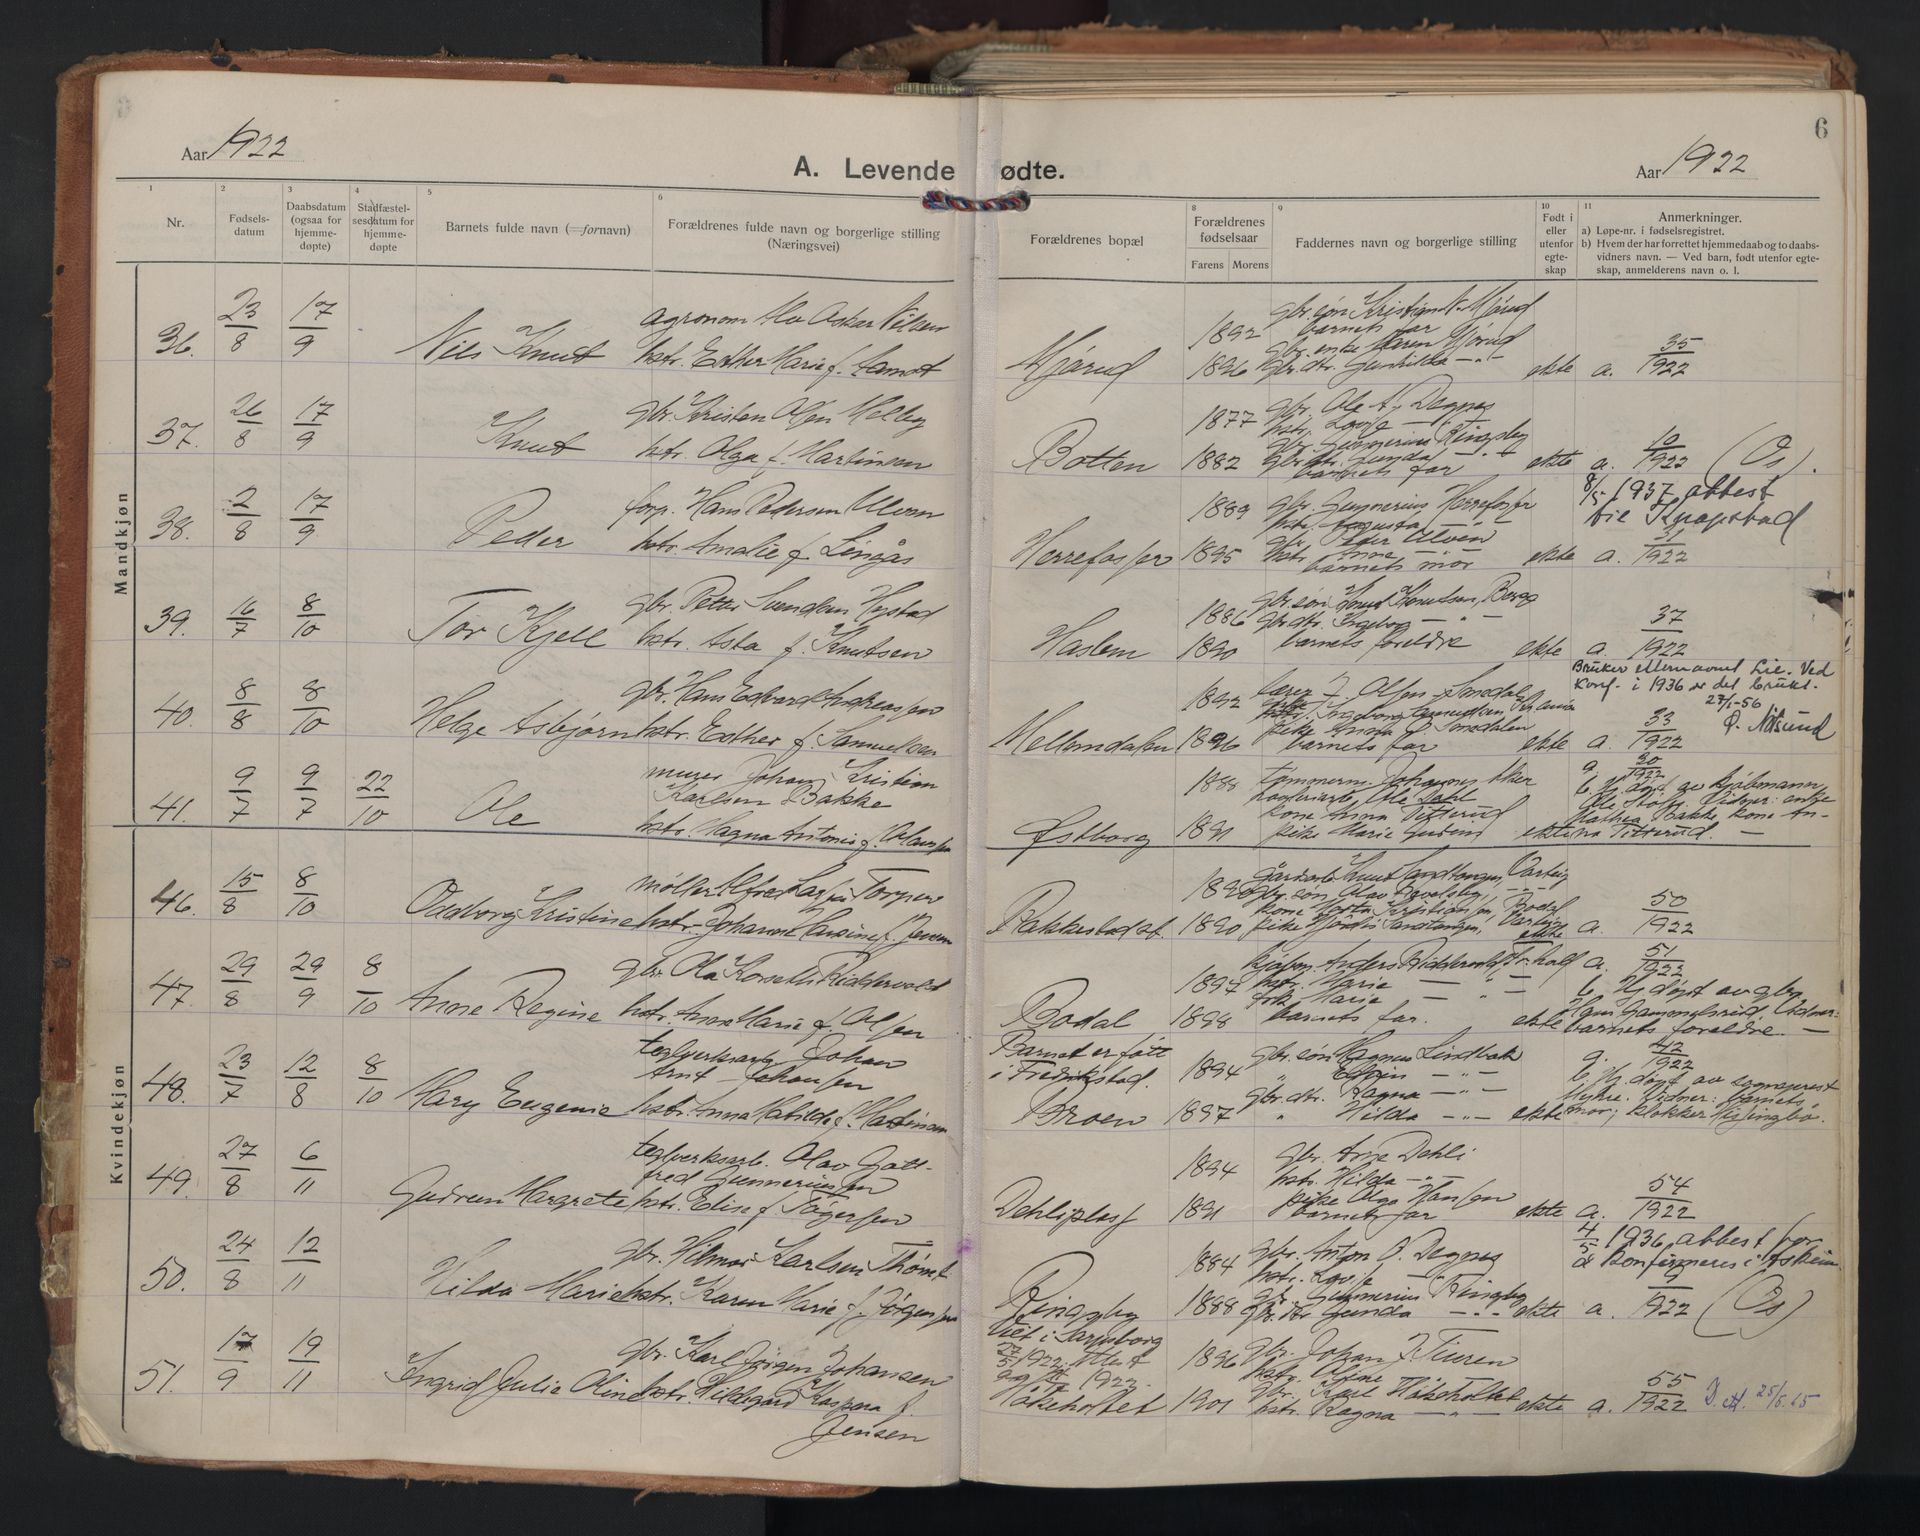 6
Aar 1922
A. Levende fødte.
Aar 1922
1 2 3 4 5 6 8 9 10 11
Nr.
Fødselsdatum
Daabsdatum (ogsaa for hjemmedøpte)
Stadfæstelsesdatum for hjemmedøpte
Barnets fulde navn (=fornavn)
Forældrenes fulde navn og borgerlige stilling (Næringsvei)
Forældrenes bopæl
Forældrenes fødselsaar
Farens Morens
Faddernes navn og borgerlige stilling
Født i eller utenfor egteskap
Anmerkninger.
a) Løpe-nr. i fødselsregistret.
b) Hvem der har forrettet hjemmedaab og to daabsvidners navn. — Ved barn, født utenfor egteskap, anmelderens navn o. l.
Mandkjøn
36. 23/8 17/9 Nils Knut
agronom Alv Oskar Nilsen
hstr. Esther Marie f. Hamdt
Mjørud
1892
1896
gbr. søn Kristian N. Mjørud
barnets far
gbr. enke Maren Mjørud
gbr. dtr. Gunhilda — " —
ekte a. 35/1922
37. 26/8 17/9 Knut
gbr. Kristen Olsen Melby
hstr. Olga f. Martinsen
Botten
1877
1882
gbr. Ole A. Degnes
hstr. Lovise — " —
gbr. Gunnerius Ringsby
gbr. dtr. Gunda — " —
barnets far
ekte a. 10/1922 (Os).
38. 2/8 17/9 Peder
forp. Hans Pedersen Ulven
hstr. Amalie f. Lingås
Herrefosser
1889
1895
gbr. Gunnerius Herrefosser
hstr. Augusta — " —
gbr. Peder Ulven
hstr. Anne — " —
barnets mor
ekte 8/5 1937 attest
til Knapstad
a. 31/1922
39. 16/7 8/10 Tor Kjell
gbr. Petter Svendsen Hystad
hstr. Asta f. Knutsen
Haslem
1886
1890
gbr. søn Knud Knutsen, Berg
gbr. dtr. Ingeborg — " —
barnets foreldre
ekte a. 37/1922
40. 8/8 8/10 Helge Asbjørn
gbr. Hans Edvard Andreassen
hstr. Esther f. Samuelsen
Mellemdalen
1892
1896
lærer J. Olsen — Smedalen
pike Anna Smedalen
barnets far
ekte Bruker etternavnet Lie. Ved
konf. i 1936 er det brukt.
27/1-56
a. 33/1922
41. 9/7 9/7 22/10 Ole
murer Johan Kristian
Karlsen Bakke
hstr. Magna Antonie f. Olaussen
Østborg
1888
1891
tømmerm. Johannes Aker
kone Anna Titterud
pike Marie Gudim
ekte a. 30/1922
b. Hj. døpt av kjøbmann
Ole Stoff. Vidner: enke
Mathea Bakke, kone An-
na Titterud. —
Kvindekjøn
46. 15/8 8/10 Oddborg Kristine
møller Alfred Larsen Torper
hstr. Johanne Hansine f. Jensen
Rakkestad st.
1890
1890
gårdarb. Knut Sandtangen, Varteig
gbr. søn Olav Ravelsby — " —
kone Marta Kristiansen, Bodal
pike Hjørdis Sandtangen, Varteig
ekte a. 50/1922
47. 29/8 29/9 8/10 Anne Regine
gbr. Ola Korseth Riddervold
hstr. Anne Marie f. Olsen
Bodal
1894
1898
kjøpm. Anders Riddervold, Torhall
hstr. Marie — " —
frk. Marie — " —
barnets far.
ekte a. 51/1922
b. Hj. døpt av gbr.
Hans Gammelsrud. Vidner:
barnets foreldre. —
48. 23/7 12/8 8/10 Mary Eugenie
teglverksarb. Johan
Arnt Johansen
hstr. Anna Matilda f. Martinsen
Barnet er født
i Fredrikstad.
Broen
1894
1897
gbr. søn Magnus Lindbak
" Edvin — " —
gbr. dtr. Ragna — " —
" Hilda — " —
ekte a. 42/1922
b. Hj. døpt av sogneprest
Myhre. Vidner: barnets
mor, klokker Hissingbø.
49. 27/8 6/11 Gudrun Margrete
teglverksarb. Olav Gott-
fred Gunneriussen
hstr. Elise f. Tøgersen
Dehliplass
1894
1891
gbr. Arne Dehli
hstr. Hilda — " —
pike Olga Hansen
barnets far
ekte a. 54/1922
50. 24/8 12/11 Hilda Marie
gbr. Hilmar Karlsen Thømt
hstr. Karen Marie f. Jørgensen
Ringsby
1884
1888
gbr. Anton O. Degnes
hstr. Lovise — " —
gbr. Gunnerius Ringsby
gbr. dtr. Gunda — " —
ekte 4/5 1936 attest for
å konfirmeres i Askim.
a. 9/1922 (Os)
51. 17/9 19/11 Ingrid Julie Oline
gbr. Karl Jørgen Johansen
hstr. Hildegard Kaspara f.
Jensen
Viet i Sarpsborg
23/5 1922. Attest
Håkeholtet
1896
1901
gbr. Johan J. Tuuren
hstr. Oline — " —
gbr. Karl Håkeholtet
hstr. Ragna — " —
ekte a. 55/1922 D. att. 25/5.65